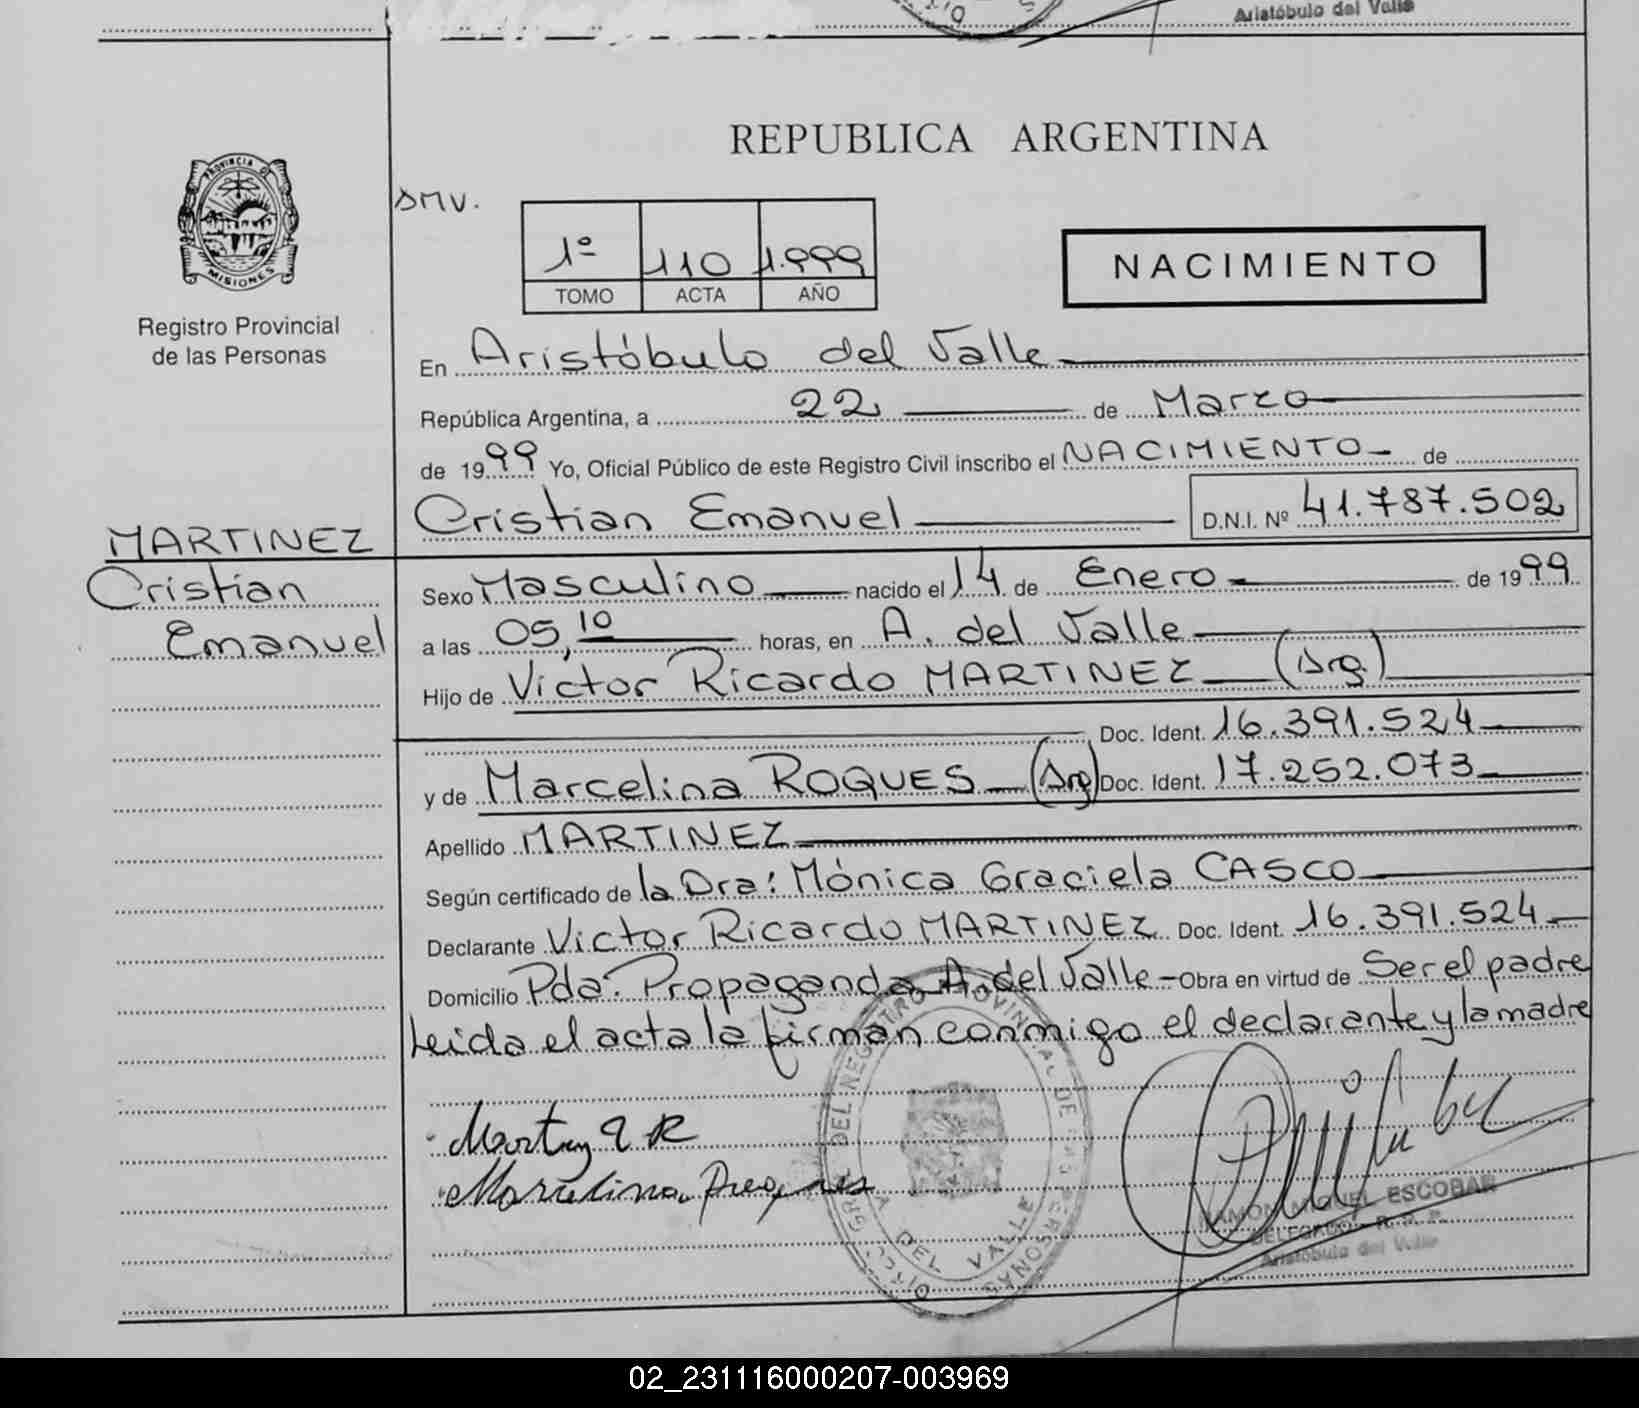 Aristóbulo del Valle
REPUBLICA ARGENTINA
PROVINCIA DE
MISIONES
Registro Provincial
de las Personas
1º 110 1.999
TOMO ACTA AÑO
NACIMIENTO
En Aristóbulo del Valle
República Argentina, a 22 de Marzo
de 1999 Yo, Oficial Público de este Registro Civil inscribo el NACIMIENTO de
Cristian Emanuel D.N.I. Nº 41.787.502
MARTINEZ
Cristian
Emanuel
Sexo Masculino nacido el 14 de Enero de 1999
a las 05,10 horas, en A. del Valle
Hijo de Victor Ricardo MARTINEZ (Arg.)
Doc. Ident. 16.391.524
y de Marcelina ROQUES (Arg) Doc. Ident. 17.252.073
Apellido MARTINEZ
Según certificado de la Dra: Mónica Graciela CASCO
Declarante Victor Ricardo MARTINEZ Doc. Ident. 16.391.524
Domicilio Pda. Propaganda A. del Valle - Obra en virtud de Ser el padre
Leida el acta la firman conmigo el declarante y la madre
RAMON MIGUEL ESCOBAR
DELEGADO R. P. P.
Aristóbulo del Valle
02_231116000207-003969